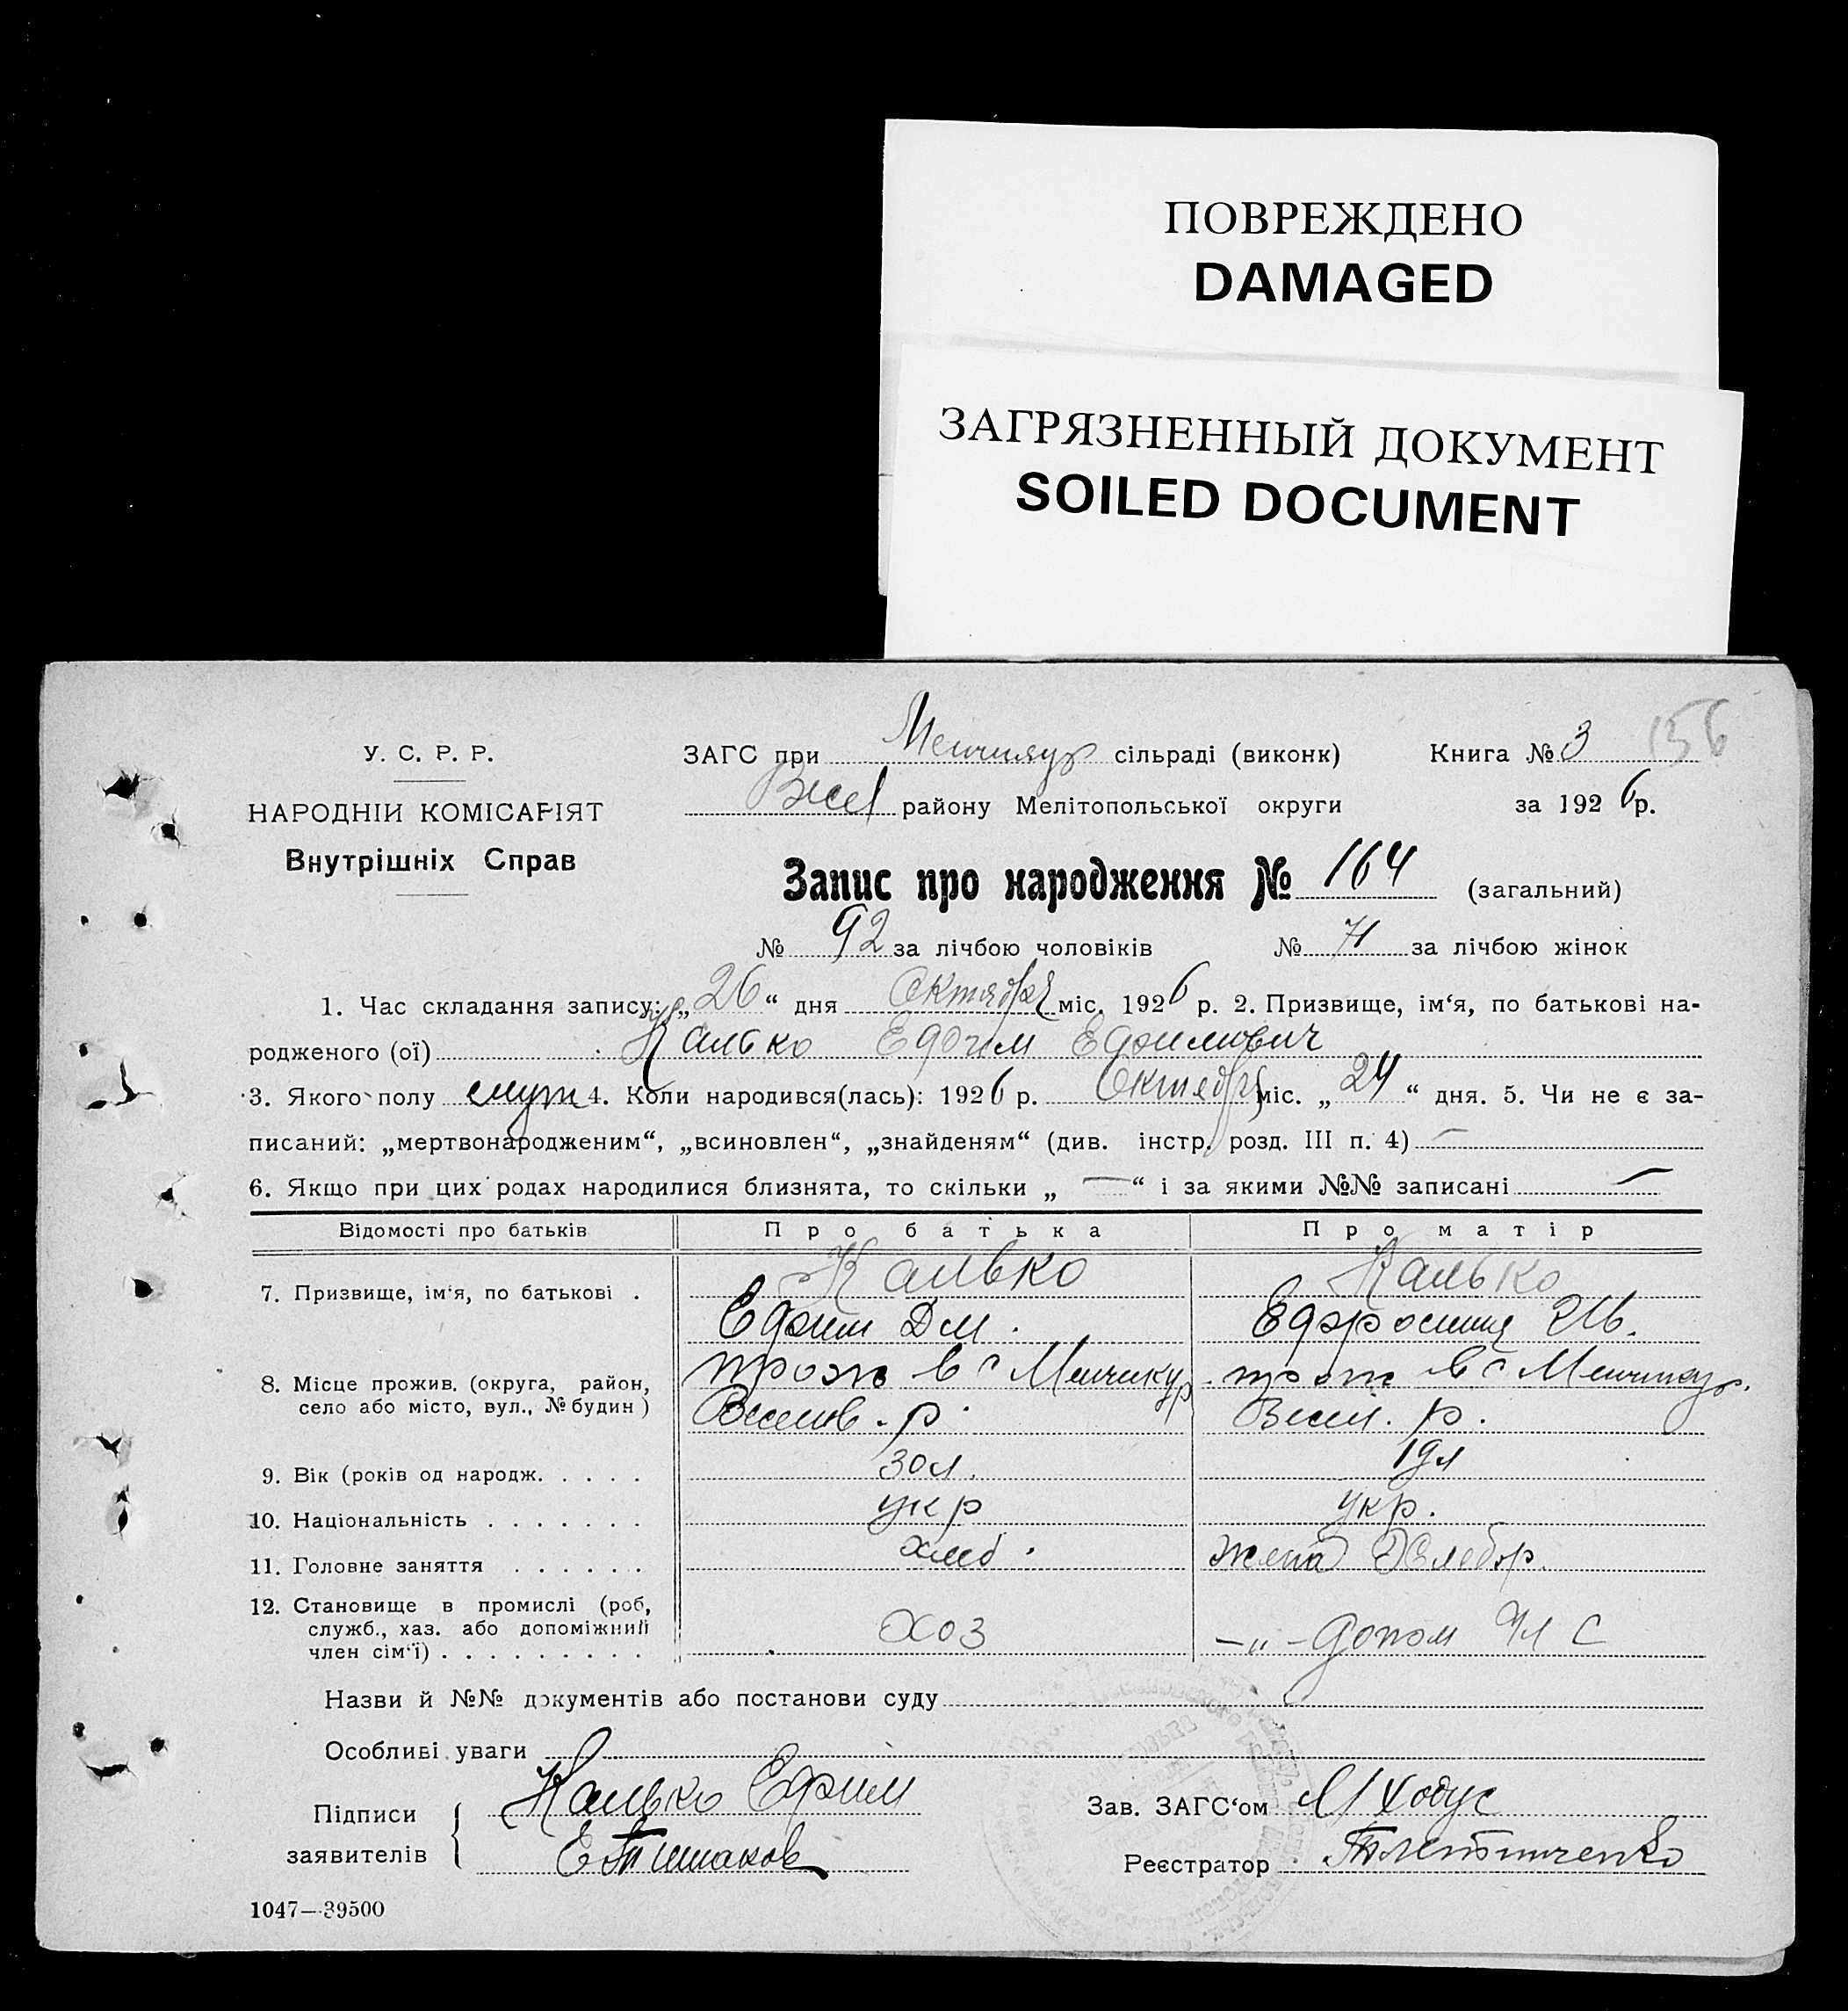 ПОВРЕЖДЕНО
DAMAGED
ЗАГРЯЗНЕННЫЙ ДОКУМЕНТ
SOILED DOCUMENT
156
У. С. Р. Р.
НАРОДНІЙ КОМІСАРІЯТ
Внутрішніх Справ
ЗАГС при Менчикур сільраді (виконк) Книга № 3
Весел району Мелітопольської округи за 1926 р.
Запис про народження № 164 (загальний)
№ 92 за лічбою чоловіків № 71 за лічбою жінок
1. Час складання запису: „26“ дня Октября міс. 1926 р. 2. Призвище, ім'я, по батькові на-
родженого (ої) Калько Ефим Ефимович
3. Якого полу муж 4. Коли народився(лась): 1926 р. Октября міс. „24“ дня. 5. Чи не є за-
писаний: „мертвонародженим“, „всиновлен“, „знайденям“ (див. інстр. розд. III п. 4) —
6. Якщо при цих родах народилися близнята, то скільки „—“ і за якими №№ записані —
Відомості про батьків Про батька Про матір
7. Призвище, ім'я, по батькові . Калько Калько
Ефим Дм. Ефросиния Ив.
8. Місце прожив. (округа, район, прож в с Менчикур прож в с Менчикур.
село або місто, вул., № будин) Веселов. р. Весел. р.
9. Вік (років од народж. . . . . 30 л. 19 л
10. Національність . . . . . . . укр укр.
11. Головне заняття . . . . . . хлеб. жена Хлебор.
12. Становище в промислі (роб,
служб., хаз. або допоміжний Хоз —„— допом чл С
член сім'ї) . . . . . . . . .
Назви й №№ документів або постанови суду
Особливі уваги
Підписи Калько Ефим Зав. ЗАГС'ом Ходус
заявителів Реєстратор
1047—39500